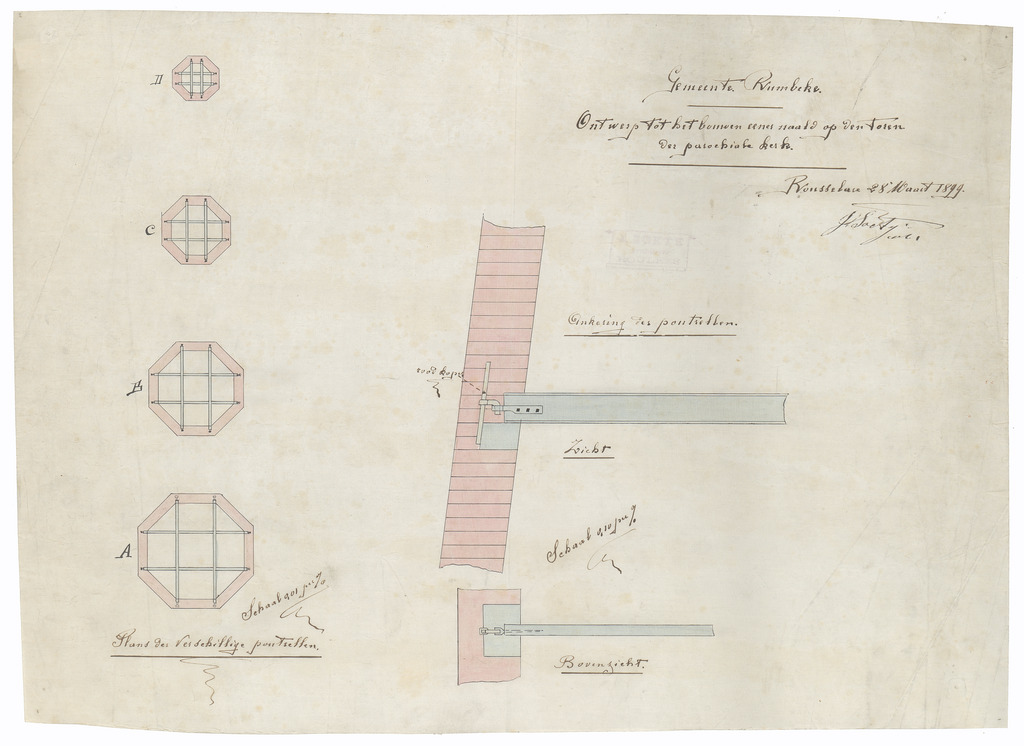 Gemeente Rumbeke.
Ontwerp tot het bouwen eener naald op den toren
der parochiale kerk.
Rousselare 28 Maart 1899.
D
C
B
A
Ankering der poutrellen.
rood koper
Zicht
Schaal 0,10 p. m/
Schaal 0,01 p. m/
Plans der verschillige poutrellen.
Bovenzicht.